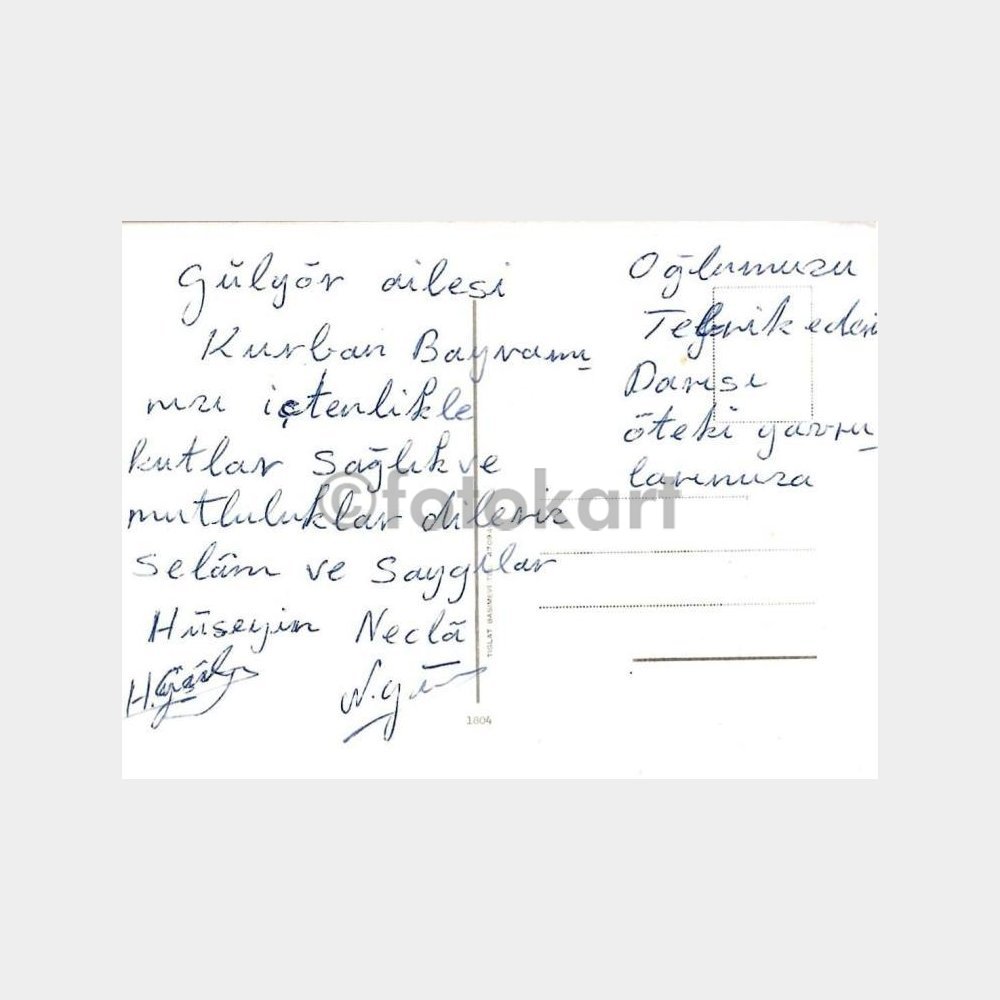 Gülgör ailesi
Kurban Bayramı
nızı içtenlikle
kutlar sağlık ve
mutluluklar dileriz
Selâm ve Saygılar
Hüseyin Neclâ
Oğlumuzu
Tebrik eder
Darısı
öteki yavru
larımıza
TIGLAT BASIMEVİ
1804
©fotokart